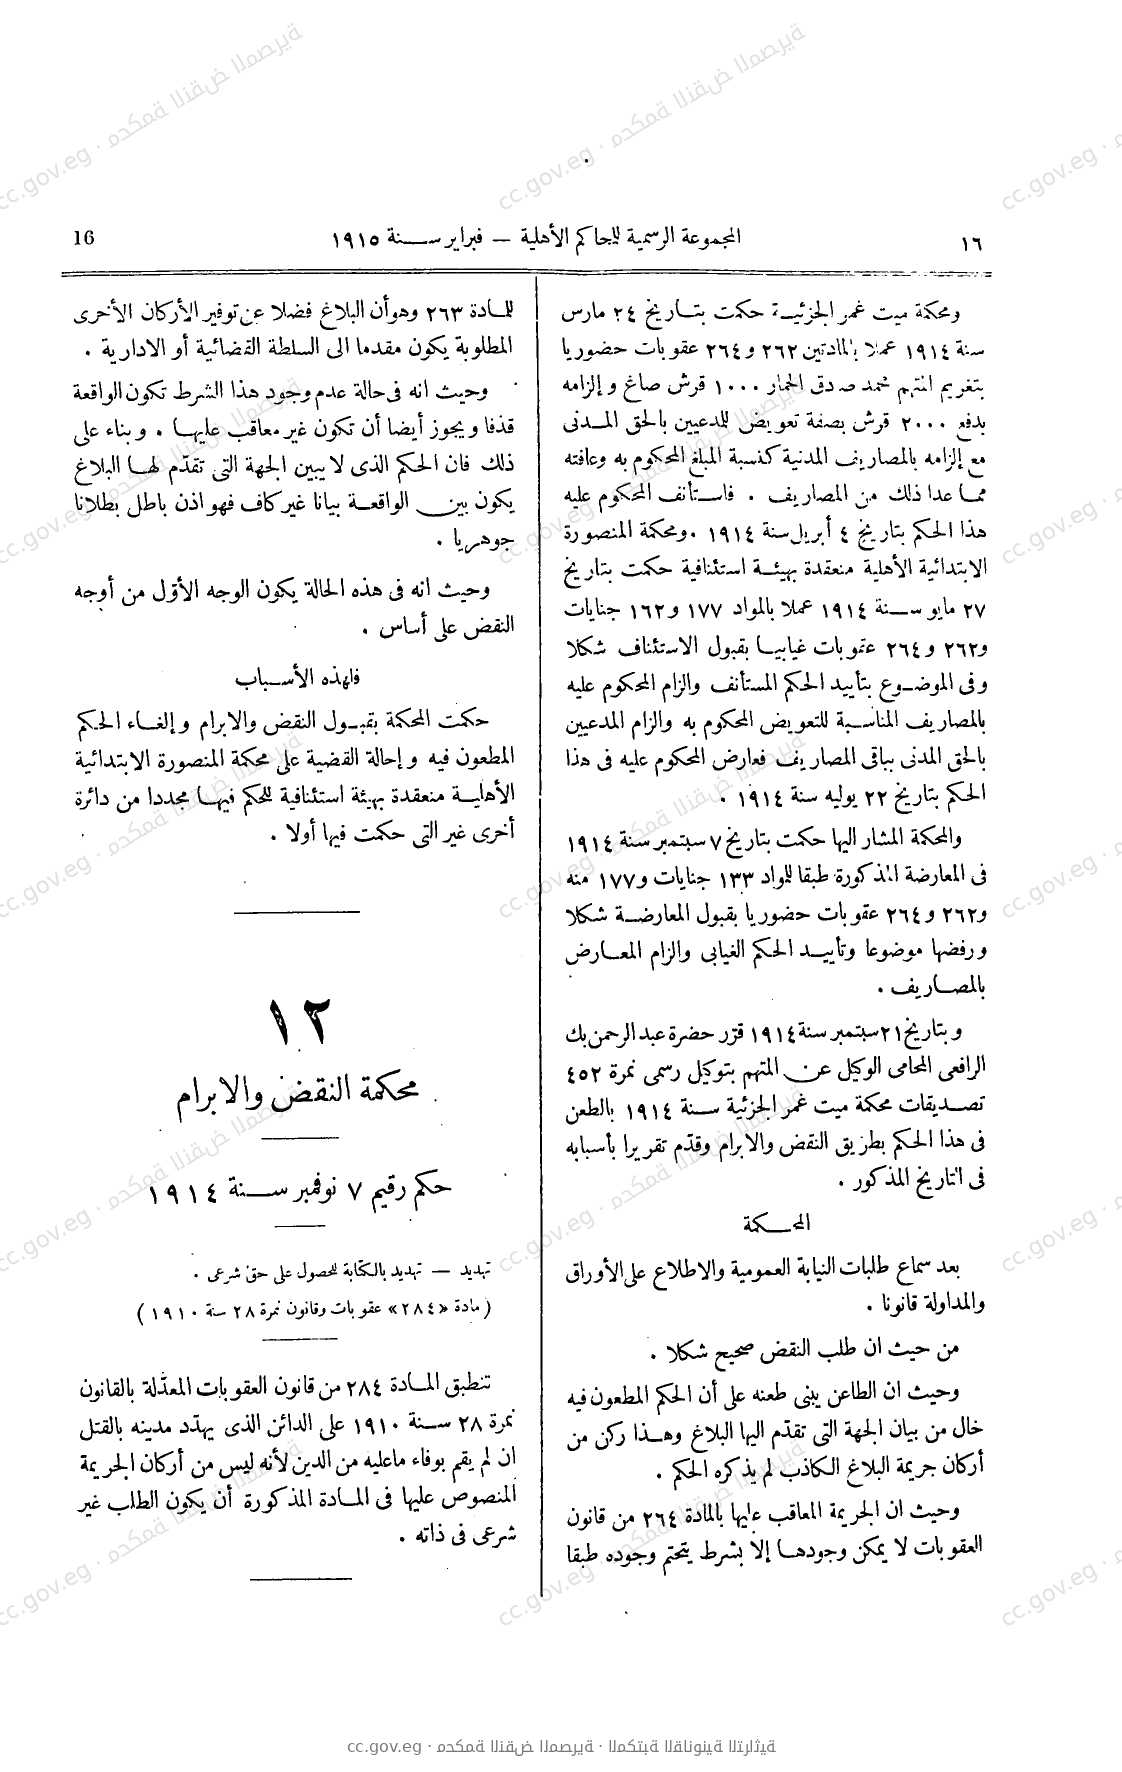 ١٦
المجموعة الرسمية للمحاكم الأهلية — فبراير سنة ١٩١٥
16
ومحكمة ميت غمر الجزئية حكمت بتاريخ ٢٤ مارس
سنة ١٩١٤ عملا بالمادتين ٢٦٢ و٢٦٤ عقوبات حضوريا
بتغريم المتهم محمد صادق الخمار ١٠٠٠ قرش صاغ وإلزامه
بدفع ٢٠٠٠ قرش بصفة تعويض للمدعيين بالحق المدنى
مع إلزامه بالمصاريف المدنية كنسبة المبلغ المحكوم به وعافته
مما عدا ذلك من المصاريف . فاستأنف المحكوم عليه
هذا الحكم بتاريخ ٤ أبريل سنة ١٩١٤ . ومحكمة المنصورة
الابتدائية الأهلية منعقدة بهيئة استئنافية حكمت بتاريخ
٢٧ مايو سنة ١٩١٤ عملا بالمواد ١٧٧ و١٦٢ جنايات
و٢٦٢ و٢٦٤ عقوبات غيابيا بقبول الاستئناف شكلا
وفى الموضوع بتأييد الحكم المستأنف والزام المحكوم عليه
بالمصاريف المناسبة للتعويض المحكوم به والزام المدعيين
بالحق المدنى بباقى المصاريف فعارض المحكوم عليه فى هذا
الحكم بتاريخ ٢٢ يوليه سنة ١٩١٤ .
والمحكمة المشار اليها حكمت بتاريخ ٧ سبتمبر سنة ١٩١٤
فى المعارضة المذكورة طبقا للمواد ١٣٣ جنايات و١٧٧ منه
و٢٦٢ و٢٦٤ عقوبات حضوريا بقبول المعارضة شكلا
ورفضها موضوعا وتأييد الحكم الغيابى والزام المعارض
بالمصاريف .
وبتاريخ ٢١ سبتمبر سنة ١٩١٤ قرّر حضرة عبد الرحمن بك
الرافعى المحامى الوكيل عن المتهم بتوكيل رسمى نمرة ٤٥٢
تصديقات محكمة ميت غمر الجزئية سنة ١٩١٤ بالطعن
فى هذا الحكم بطريق النقض والابرام وقدّم تقريرا بأسبابه
فى التاريخ المذكور .
المحكمة
بعد سماع طلبات النيابة العمومية والاطلاع على الأوراق
والمداولة قانونا .
من حيث ان طلب النقض صحيح شكلا .
وحيث ان الطاعن يبنى طعنه على أن الحكم المطعون فيه
خال من بيان الجهة التى تقدّم اليها البلاغ وهذا ركن من
أركان جريمة البلاغ الكاذب لم يذكره الحكم .
وحيث ان الجريمة المعاقب عليها بالمادة ٢٦٤ من قانون
العقوبات لا يمكن وجودها إلا بشرط يتحتم وجوده طبقا
للمادة ٢٦٣ وهو أن البلاغ فضلا عن توفير الأركان الأخرى
المطلوبة يكون مقدما الى السلطة القضائية أو الادارية .
وحيث انه فى حالة عدم وجود هذا الشرط تكون الواقعة
قذفا ويجوز أيضا أن تكون غير معاقب عليها . وبناء على
ذلك فان الحكم الذى لا يبين الجهة التى تقدّم لها البلاغ
يكون بين الواقعة بيانا غير كاف فهو اذن باطل بطلانا
جوهريا .
وحيث انه فى هذه الحالة يكون الوجه الأوّل من أوجه
النقض على أساس .
فلهذه الأسباب
حكمت المحكمة بقبول النقض والابرام وإلغاء الحكم
المطعون فيه وإحالة القضية على محكمة المنصورة الابتدائية
الأهلية منعقدة بهيئة استئنافية للحكم فيها مجددا من دائرة
أخرى غير التى حكمت فيها أولا .
١٢
محكمة النقض والابرام
حكم رقيم ٧ نوفمبر سنة ١٩١٤
تهديد — تهديد بالكتابة للحصول على حق شرعى .
(مادة «٢٨٤» عقوبات وقانون نمرة ٢٨ سنة ١٩١٠)
تنطبق المادة ٢٨٤ من قانون العقوبات المعدّلة بالقانون
نمرة ٢٨ سنة ١٩١٠ على الدائن الذى يهدّد مدينه بالقتل
ان لم يقم بوفاء ما عليه من الدين لأنه ليس من أركان الجريمة
المنصوص عليها فى المادة المذكورة أن يكون الطلب غير
شرعى فى ذاته .
cc.gov.eg · محكمة النقض المصرية · المكتبة القانونية التراثية